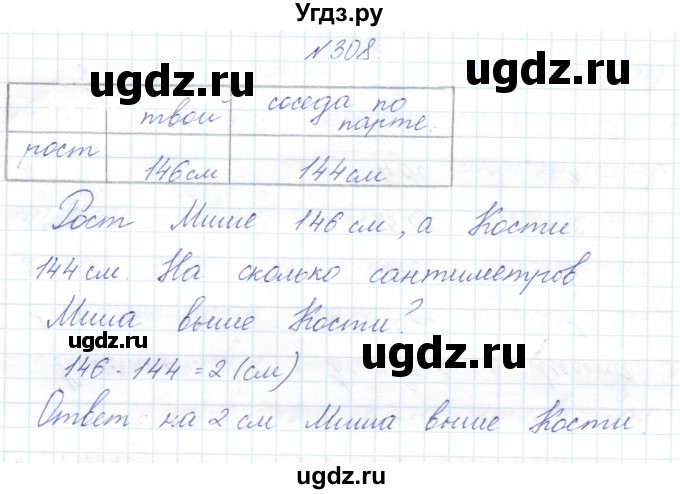 Угдз.ру
N 308.
ugdz.ru ugdz.ru
твой соседа по парте.
рост 146 см 144 см
Рост Мише 146 см, а Кости
144 см. На сколько сантиметров
Миша выше Кости?
ugdz.ru
146 - 144 = 2 (см)
ugdz.ru
Ответ: на 2 см Миша выше Кости.
ugdz.ru